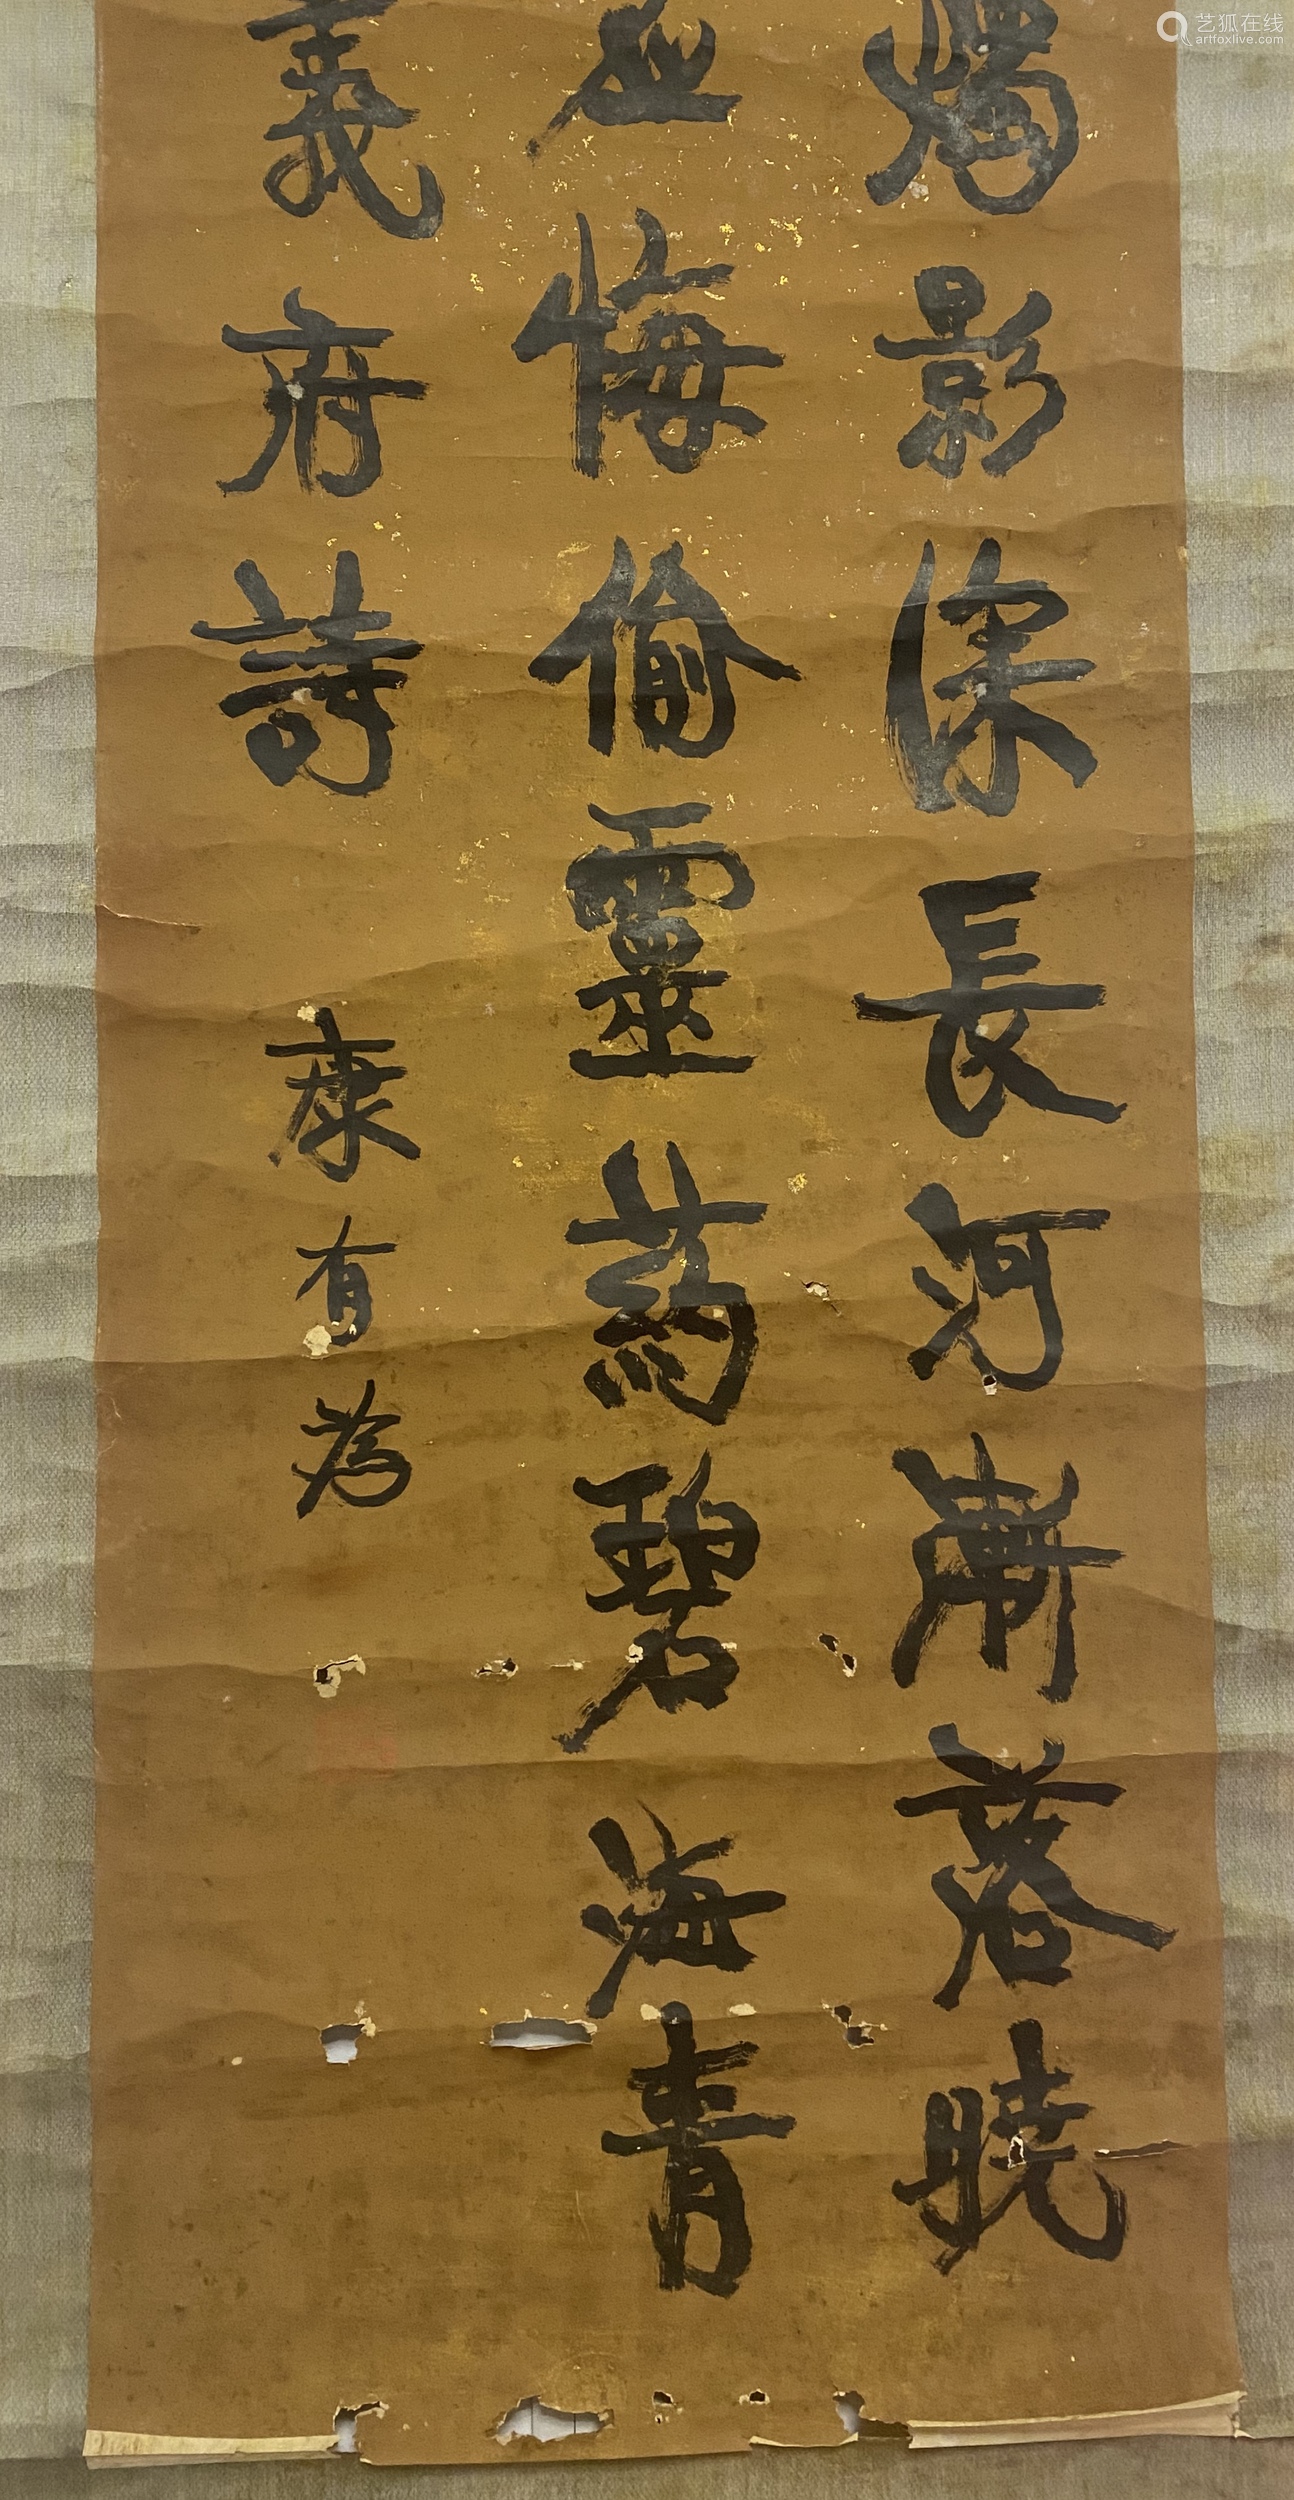 艺狐在线
artfoxlive.com
燭影深長河漸落曉
應悔偷靈药碧海青
義府詩
康有為